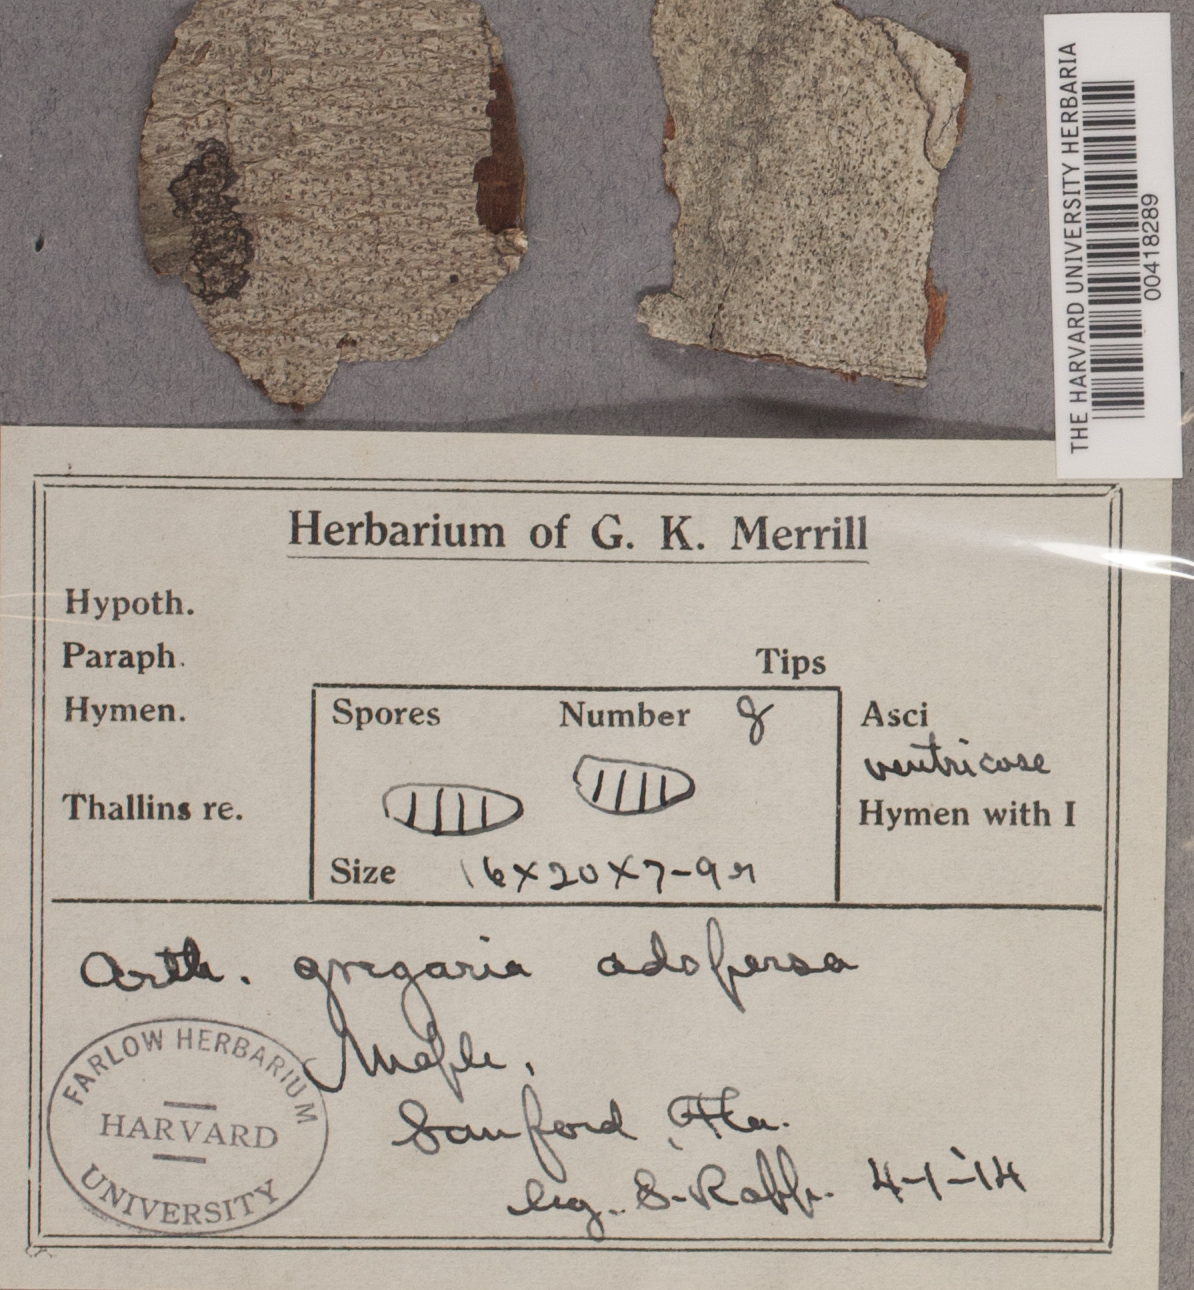 THE HARVARD UNIVERSITY HERBARIA
00418289
Herbarium of G. K. Merrill
Hypoth.
Paraph.
Tips
Hymen.
Spores Number 8
Asci
ventricose
Thallins re.
Hymen with I
Size 16×20×7-9
Arth. gregaria adspersa
Maple.
Sanford, Fla.
leg. S. Rapp. 4-1-14
FARLOW HERBARIUM
HARVARD
UNIVERSITY